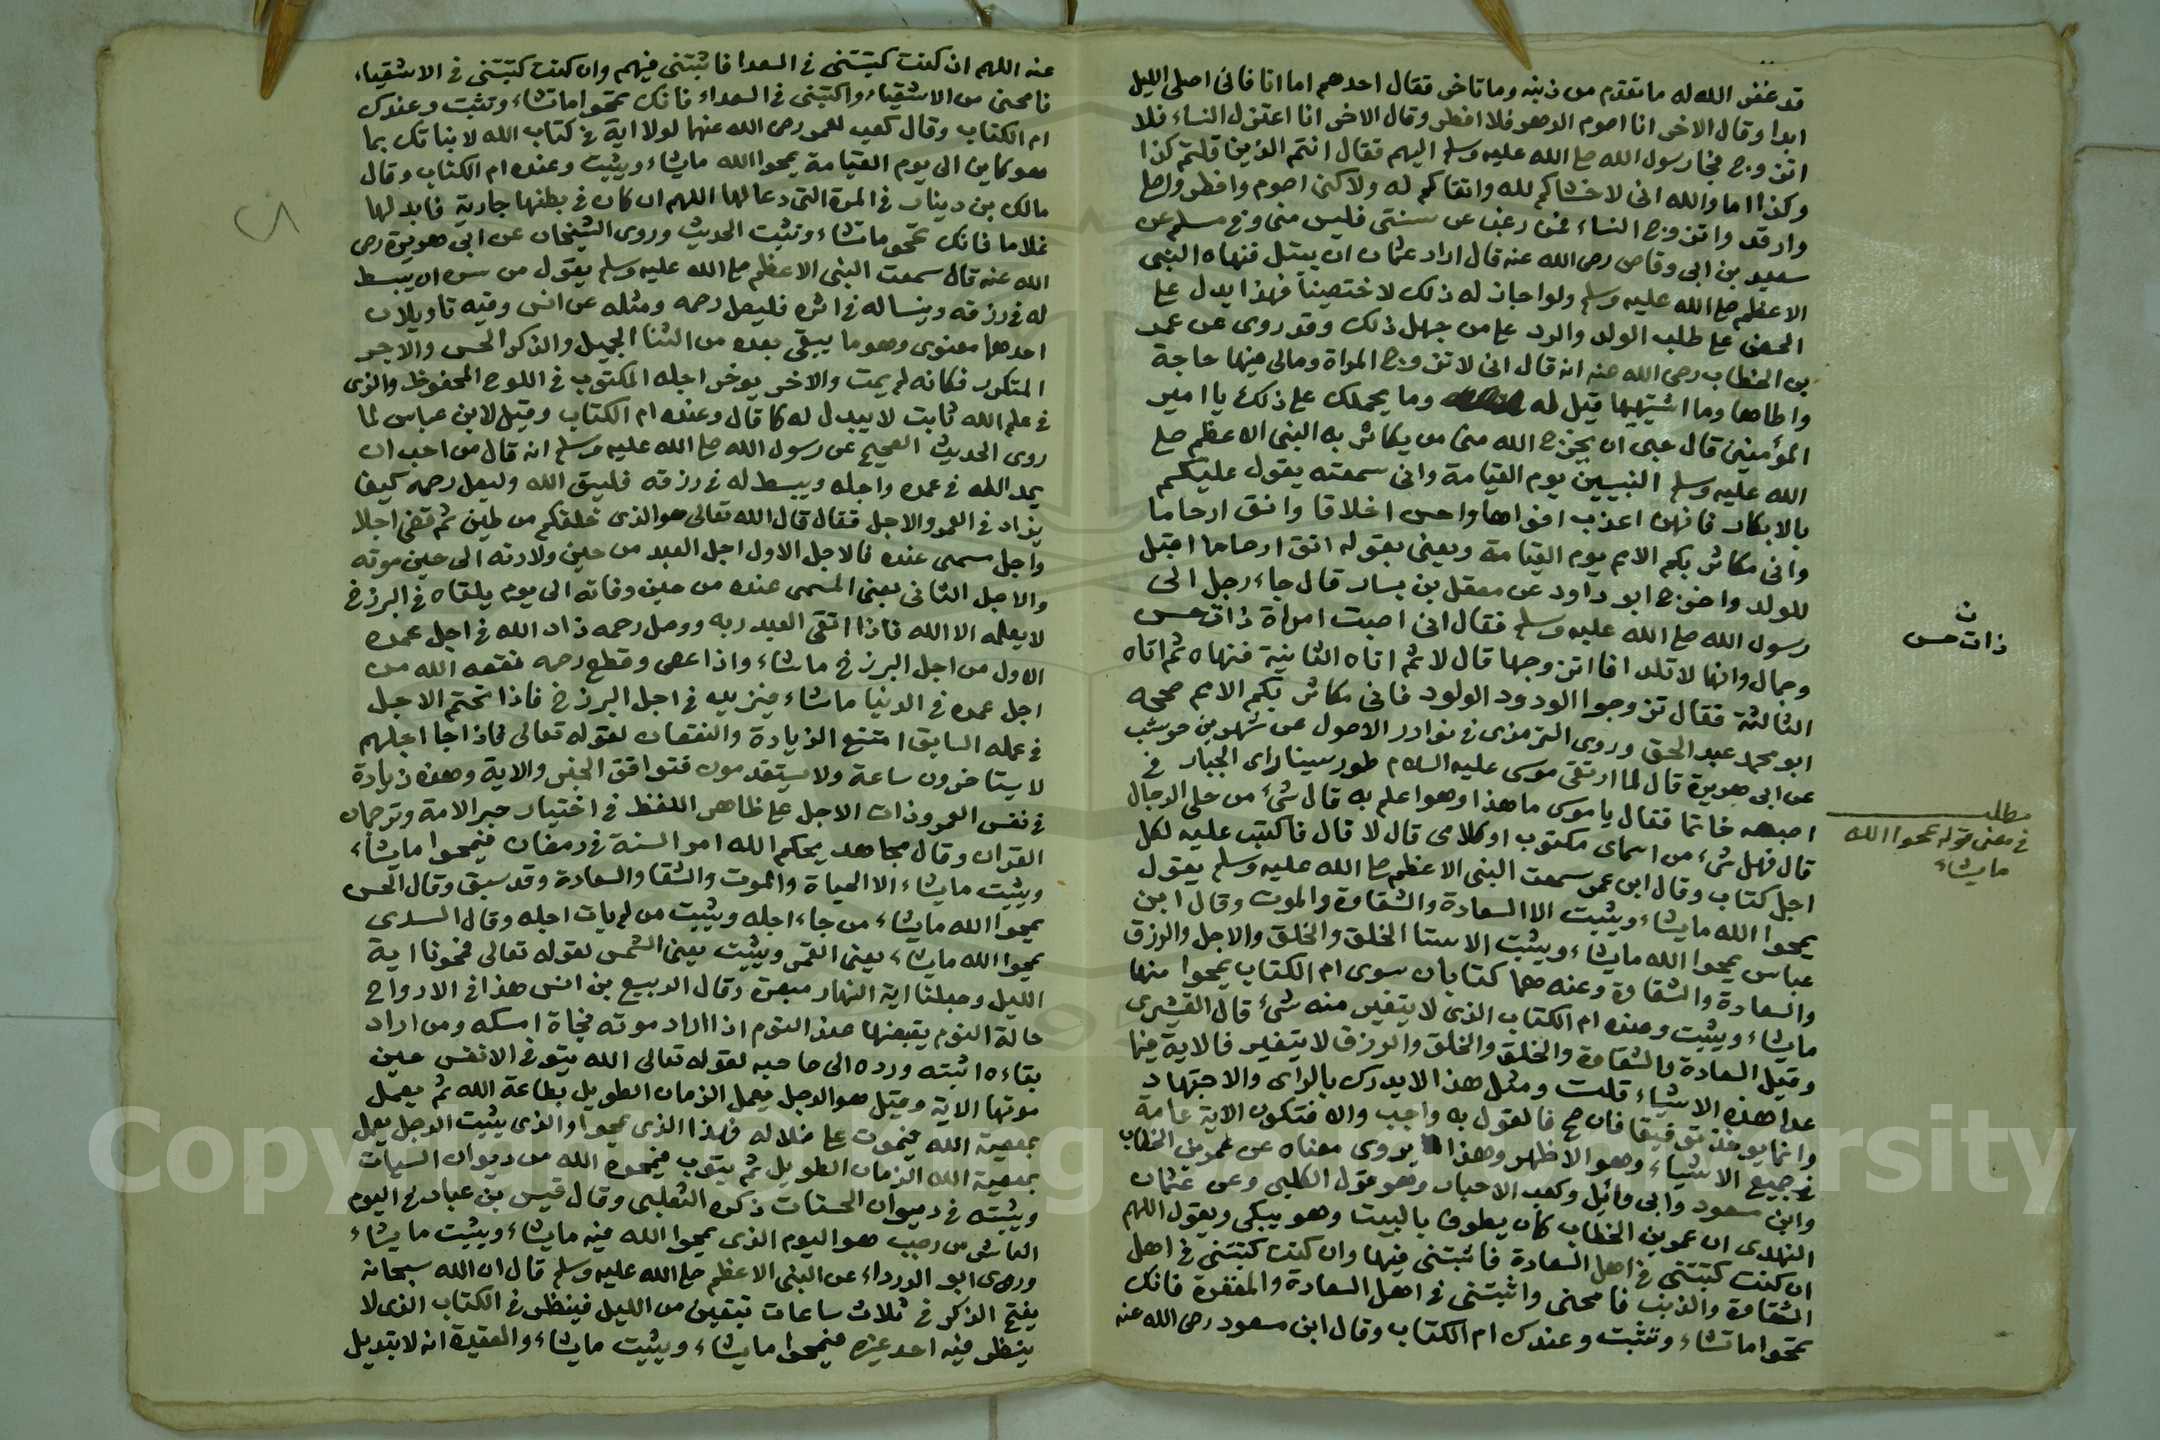 قد غفر الله له ما تقدم من ذنبه وما تاخر فقال احدهم اما انا فانى اصلى الليل
ابدا وقال الاخر انا اصوم الدهر فلا افطر وقال الاخر انا اعتزل النساء فلا
اتزوج فجا رسول الله صلى الله عليه وسلم اليهم فقال انتم الذين قلتم كذا
وكذا اما والله انى لاخشاكم لله واتقاكم له ولاكنى اصوم وافطر واصلى
وارقد واتزوج النساء فمن رغب عن سنتى فليس منى وفي مسلم عن
سعيد بن ابى وقاص رضى الله عنه قال اراد عثمان ان يبتل فنهاه النبى
الاعظم صلى الله عليه وسلم ولو اجاز له ذلك لاختصينا فهذا يدل على
الحض على طلب الولد والرد على من جهل ذلك وقد روى عن عمر
بن الخطاب رضى الله عنه انه قال انى لاتزوج المراة ومالى فيها حاجة
واطاها وما اشتهيها قيل له وما يحملك على ذلك يا امير
المؤمنين قال حبى ان يخرج الله منى من يكاثر به النبى الاعظم صلى
الله عليه وسلم النبيين يوم القيامة وانى سمعته يقول عليكم
بالابكار فانهن اعذب افواها واحسن اخلاقا وانتق ارحاما
وانى مكاثر بكم الامم يوم القيامة ويعنى بقوله انتق ارحاما اقبل
للولد واخرج ابو داود عن معقل بن يسار قال جاء رجل الى
رسول الله صلى الله عليه وسلم فقال انى اصبت امراة ذات حسن
وجمال وانها لا تلد افاتزوجها قال لا ثم اتاه الثانية فنهاه ثم اتاه
الثالثة فقال تزوجوا الودود الولود فانى مكاثر بكم الامم صححه
ابو محمد عبد الحق وروى الترمذى في نوادر الاصول عن شهر بن حوشب
عن ابى هريرة قال لما ارتقى موسى عليه السلام طور سينا راى الجبار في
اصبعه خاتما فقال يا موسى ما هذا وهو اعلم به قال شىء من حلى الرجال
قال فهل شىء من اسماى مكتوب او كلامى قال لا قال فاكتب عليه لكل
اجل كتاب وقال ابن عمر سمعت النبى الاعظم صلى الله عليه وسلم يقول
يمحوا الله ما يشاء ويثبت الا السعادة والشقاوة والموت وقال ابن
عباس يمحوا الله ما يشاء ويثبت الا ستا الخلق والخلق والاجل والرزق
والسعادة والشقاوة وعنه هما كتابان سوى ام الكتاب يمحوا منهما
ما يشاء ويثبت وعنده ام الكتاب الذى لا يتغير منه شىء قال القشيرى
وقيل السعادة والشقاوة والخلق والخلق والرزق لا يتغير فالاية فيما
عدا هذه الاشياء قلت ومثل هذا لا يدرك بالراى والاجتهاد
وانما يوخذ توقيفا فان صح فالقول به واجب والا فتكون الاية عامة
في جميع الاشياء وهو الاظهر وهذا يروى معناه عن عمر بن الخطاب
وابن مسعود وابى وائل وكعب الاحبار وهو قول الكلبى وعن عثمان
النهدى ان عمر بن الخطاب كان يطوف بالبيت وهو يبكى ويقول اللهم
ان كنت كتبتنى في اهل السعادة فاثبتنى فيها وان كنت كتبتنى في اهل
الشقاوة والذنب فامحنى واثبتنى في اهل السعادة والمغفرة فانك
تمحوا ما تشاء وتثبت وعندك ام الكتاب وقال ابن مسعود رضى الله عنه
ن
ذات حسن
مطلب
في معنى قوله يمحوا الله
ما يشاء
عنه اللهم ان كنت كتبتنى في السعدا فاثبتنى فيهم وان كنت كتبتنى في الاشقياء
فامحنى من الاشقياء واكتبنى في السعداء فانك تمحوا ما تشاء وتثبت وعندك
ام الكتاب وقال كعب لعمر رضى الله عنهما لولا اية في كتاب الله لانباتك بما
هو كاين الى يوم القيامة يمحوا الله ما يشاء ويثبت وعنده ام الكتاب وقال
مالك بن دينار في المرة التى دعا لها اللهم ان كان في بطنها جارية فابدلها
غلاما فانك تمحوا ما تشاء وتثبت الحديث وروى الشيخان عن ابى هريرة رضى
الله عنه قال سمعت النبى الاعظم صلى الله عليه وسلم يقول من سره ان يبسط
له في رزقه وينسا له في اثره فليصل رحمه ومثله عن انس وفيه تاويلان
احدهما معنوى وهو ما يبقى بعده من الثنا الجميل والذكر الحسن والاجر
المتكرر فكانه لم يمت والاخر يوخر اجله المكتوب في اللوح المحفوظ والذى
في علم الله ثابت لا يبدل له كما قال وعنده ام الكتاب وقيل لابن عباس لما
روى الحديث الصحيح عن رسول الله صلى الله عليه وسلم انه قال من احب ان
يمد الله في عمره واجله ويبسط له في رزقه فليتق الله وليصل رحمه كيف
يزاد في العمر والاجل فقال قال الله تعالى هو الذى خلقكم من طين ثم قضى اجلا
واجل مسمى عنده فالاجل الاول اجل العبد من حين ولادته الى حين موته
والاجل الثانى يعنى المسمى عنده من حين وفاته الى يوم يلقاه في البرزخ
لا يعلمه الا الله فاذا اتقى العبد ربه ووصل رحمه زاد الله في اجل عمره
الاول من اجل البرزخ ما شاء واذا عصى وقطع رحمه نقصه الله من
اجل عمره في الدنيا ما شاء فيزيده في اجل البرزخ فاذا تحتم الاجل
في علمه السابق امتنع الزيادة والنقصان لقوله تعالى فاذا جا اجلهم
لا يستاخرون ساعة ولا يستقدمون فتوافق الخبر والاية وهذه زيادة
في نفس العمر وذات الاجل على ظاهر اللفظ في اختيار حبر الامة وترجمان
القران وقال مجاهد يحكم الله امر السنة في رمضان فيمحوا ما يشاء
ويثبت ما يشاء الا الحياة والموت والشقا والسعادة وقد سبق وقال الحسن
يمحوا الله ما يشاء من جاء اجله ويثبت من لم يات اجله وقال السدى
يمحوا الله ما يشاء يعنى القمر ويثبت يعنى الشمس لقوله تعالى فمحونا اية
الليل وجعلنا اية النهار مبصرة وقال الربيع بن انس هذا في الارواح
حالة النوم يقبضها عند النوم اذا اراد موته فجاة امسكه ومن اراد
بقاءه اثبته ورده الى صاحبه لقوله تعالى الله يتوفى الانفس حين
موتها الاية وقيل هو الرجل يعمل الزمان الطويل بطاعة الله ثم يعمل
بمعصية الله فيموت على ضلاله فهذا الذى يمحوا والذى يثبت الرجل يعمل
بمعصية الله الزمان الطويل ثم يتوب فيمحوه الله من ديوان السيات
ويثبته في ديوان الحسنات ذكره الثعلبى وقال قيس بن عباد في اليوم
العاشر من رجب هو اليوم الذى يمحوا الله فيه ما يشاء ويثبت ما يشاء
وروى ابو الدرداء عن النبى الاعظم صلى الله عليه وسلم قال ان الله سبحانه
يفتح الذكر في ثلاث ساعات تبقين من الليل فينظر في الكتاب الذى لا
ينظر فيه احد غيره فيمحوا ما يشاء ويثبت ما يشاء والعقيدة انه لا تبديل